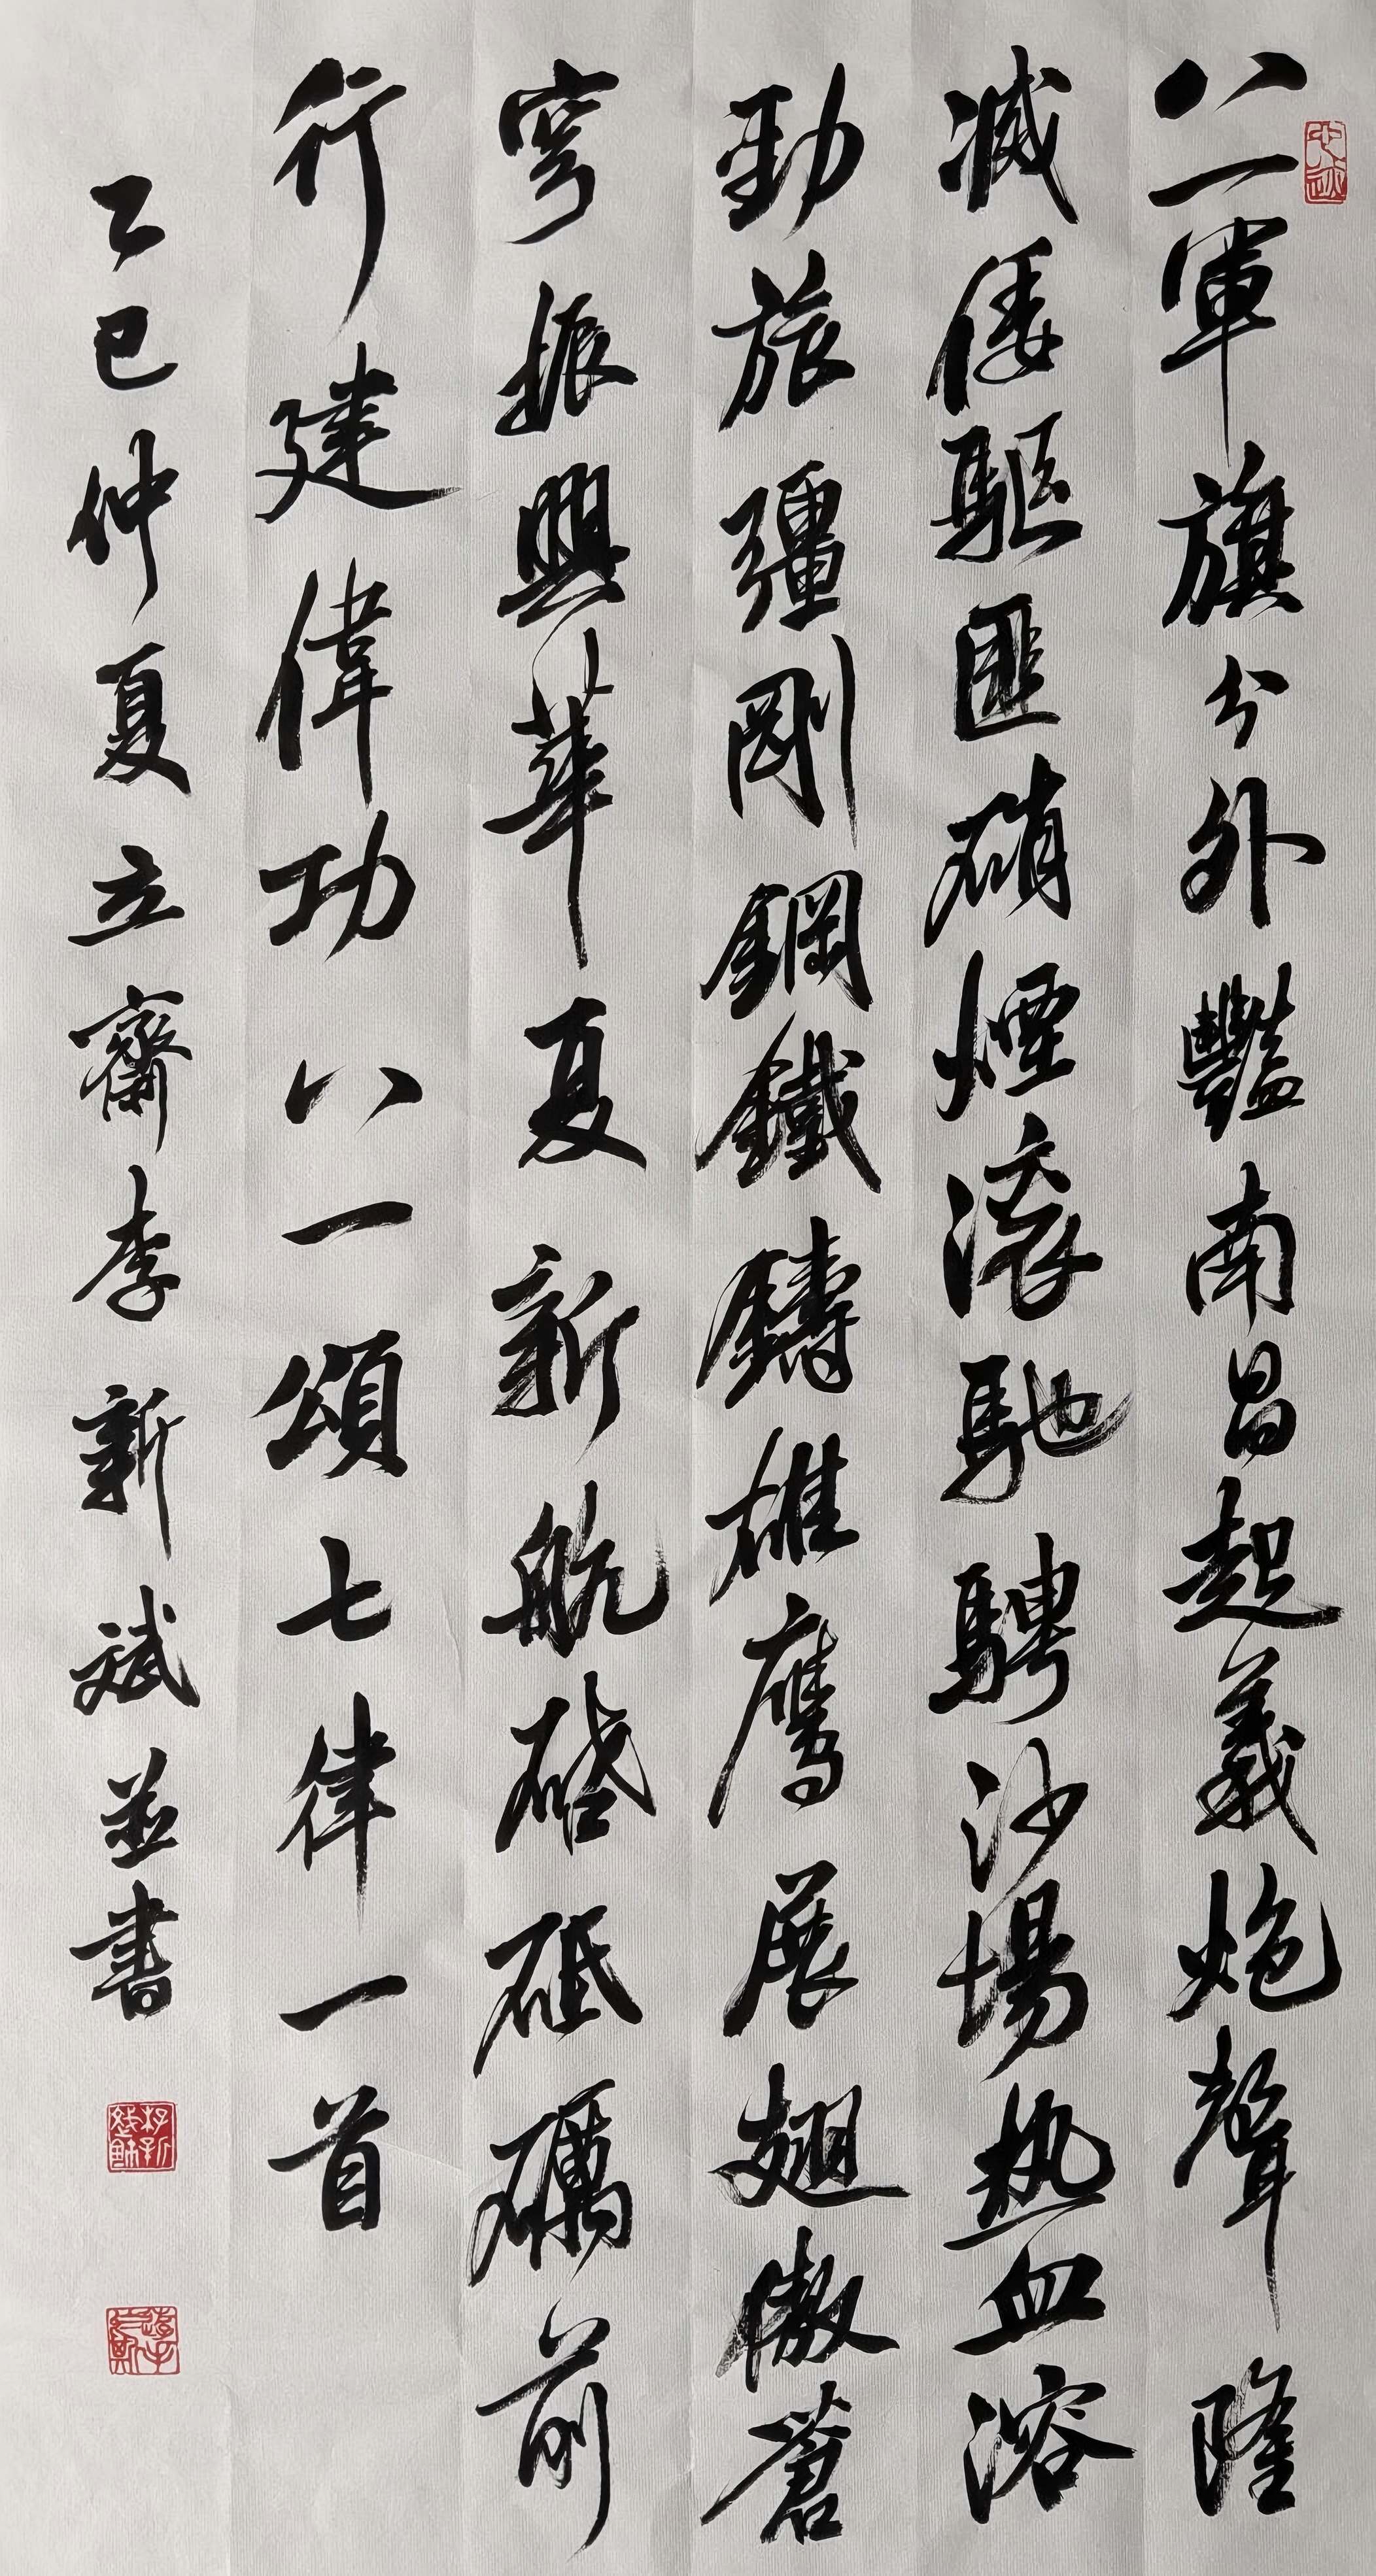 八一軍旗分外豔南昌起義炮聲隆
滅倭驅匪硝煙滾馳騁沙場热血溶
勁旅彊剛鋼鐵鑄雄鹰展翅傲蒼
穹振興華夏新航啓砥礪前
行建偉功八一頌七律一首
乙巳仲夏立齋李新斌並書